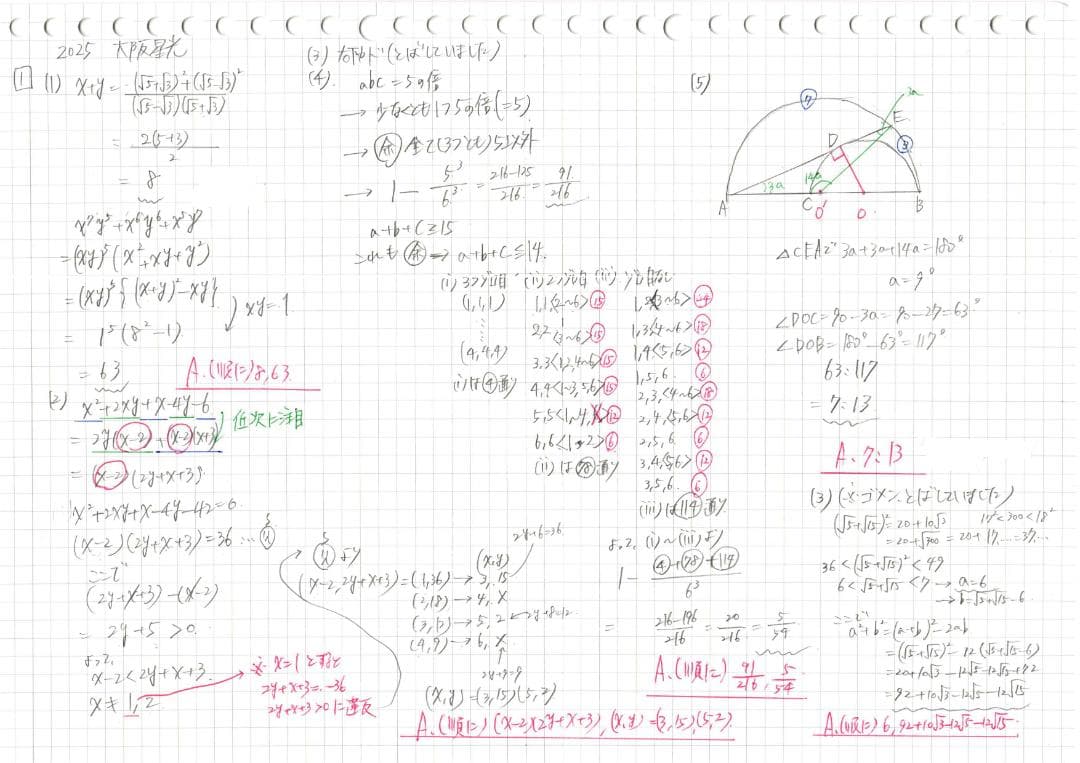 2025 大阪星光
1 (1) x+y = (√5+√3)²+(√5-√3)² / (√5-√3)(√5+√3)
= 2(5+3) / 2
= 8
x⁷y⁵+x⁶y⁶+x⁵y⁷
=(xy)⁵(x²+xy+y²)
=(xy)⁵{(x+y)²-xy}
xy=1
= 1⁵(8²-1)
= 63
A.(順に)8,63
(2) x²+2xy+x-4y-6
低次に注目
= 2y(x-2)+(x-2)(x+3)
= (x-2)(2y+x+3)
x²+2xy+x-4y-42=0
(x-2)(2y+x+3)=36…☆
ここで
(2y+x+3)-(x-2)
= 2y+5>0
よって
x-2<2y+x+3
x≠1,2
※ x=1とすると
2y+x+3=-36
2y+x+3>0に違反
☆より
(x,y)
(x-2,2y+x+3)=(1,36)→3,15
2y+6=36
(2,18)→4,×
(3,12)→5,2 ←2y+8=12
(4,9)→6,×
2y+9=9
(x,y)=(3,15)(5,2)
A.(順に)(x-2)(2y+x+3),(x,y)=(3,15)(5,2)
(3) 右下カド(とばしていました)
(4) abc=5の倍
→少なくとも1つ5の倍(=5)
→余 全て(3つとも)5以外
→ 1- 5³/6³ = 216-125/216 = 91/216
a+b+c≧15
これも余⇒a+b+c≦14
(i)3つ同じ (ii)2つ同目 (iii)
(1,1,1) 1,1<2~6>15
2,2
(4,4,4) 3,3<1,2,4~6>15
(i)は4通り 4,4<1~3,5,6>15
5,5<1~4>12
6,6<1,2>6
(ii)は78通り
<3~6>24
1,3<4~6>18
1,4<5,6>12
1,5,6. 6
2,3,<4~6>18
2,4,<5,6>12
2,5,6. 6
3,4<5,6>12
3,5,6. 6
(iii)は114通り
よって (i)~(iii)より
1- 4+78+114 / 6³
= 216-196/216 = 20/216 = 5/54
A.(順に) 91/216, 5/54
(5)
7
2a
E
3
D
14a
13a
A C O' O B
△CEAで 3a+3a+14a=180°
a=9°
∠DOC=90-3a=90-27=63°
∠DOB=180°-63°=117°
63:117
=7:13
A.7:13
(3)(※ゴメン、とばしていました)
(√5+√15)²=20+10√3 17²<300<18²
=20+√300=20+17.…=37.…
36<(√5+√15)²<49
6<√5+√15<7→a=6
→b=√5+√15-6
ここで
a²+b²=(a+b)²-2ab
=(√5+√15)²-12(√5+√15-6)
=20+10√3-12√5-12√15+72
=92+10√3-12√5-12√15
A.(順に)6,92+10√3-12√5-12√15